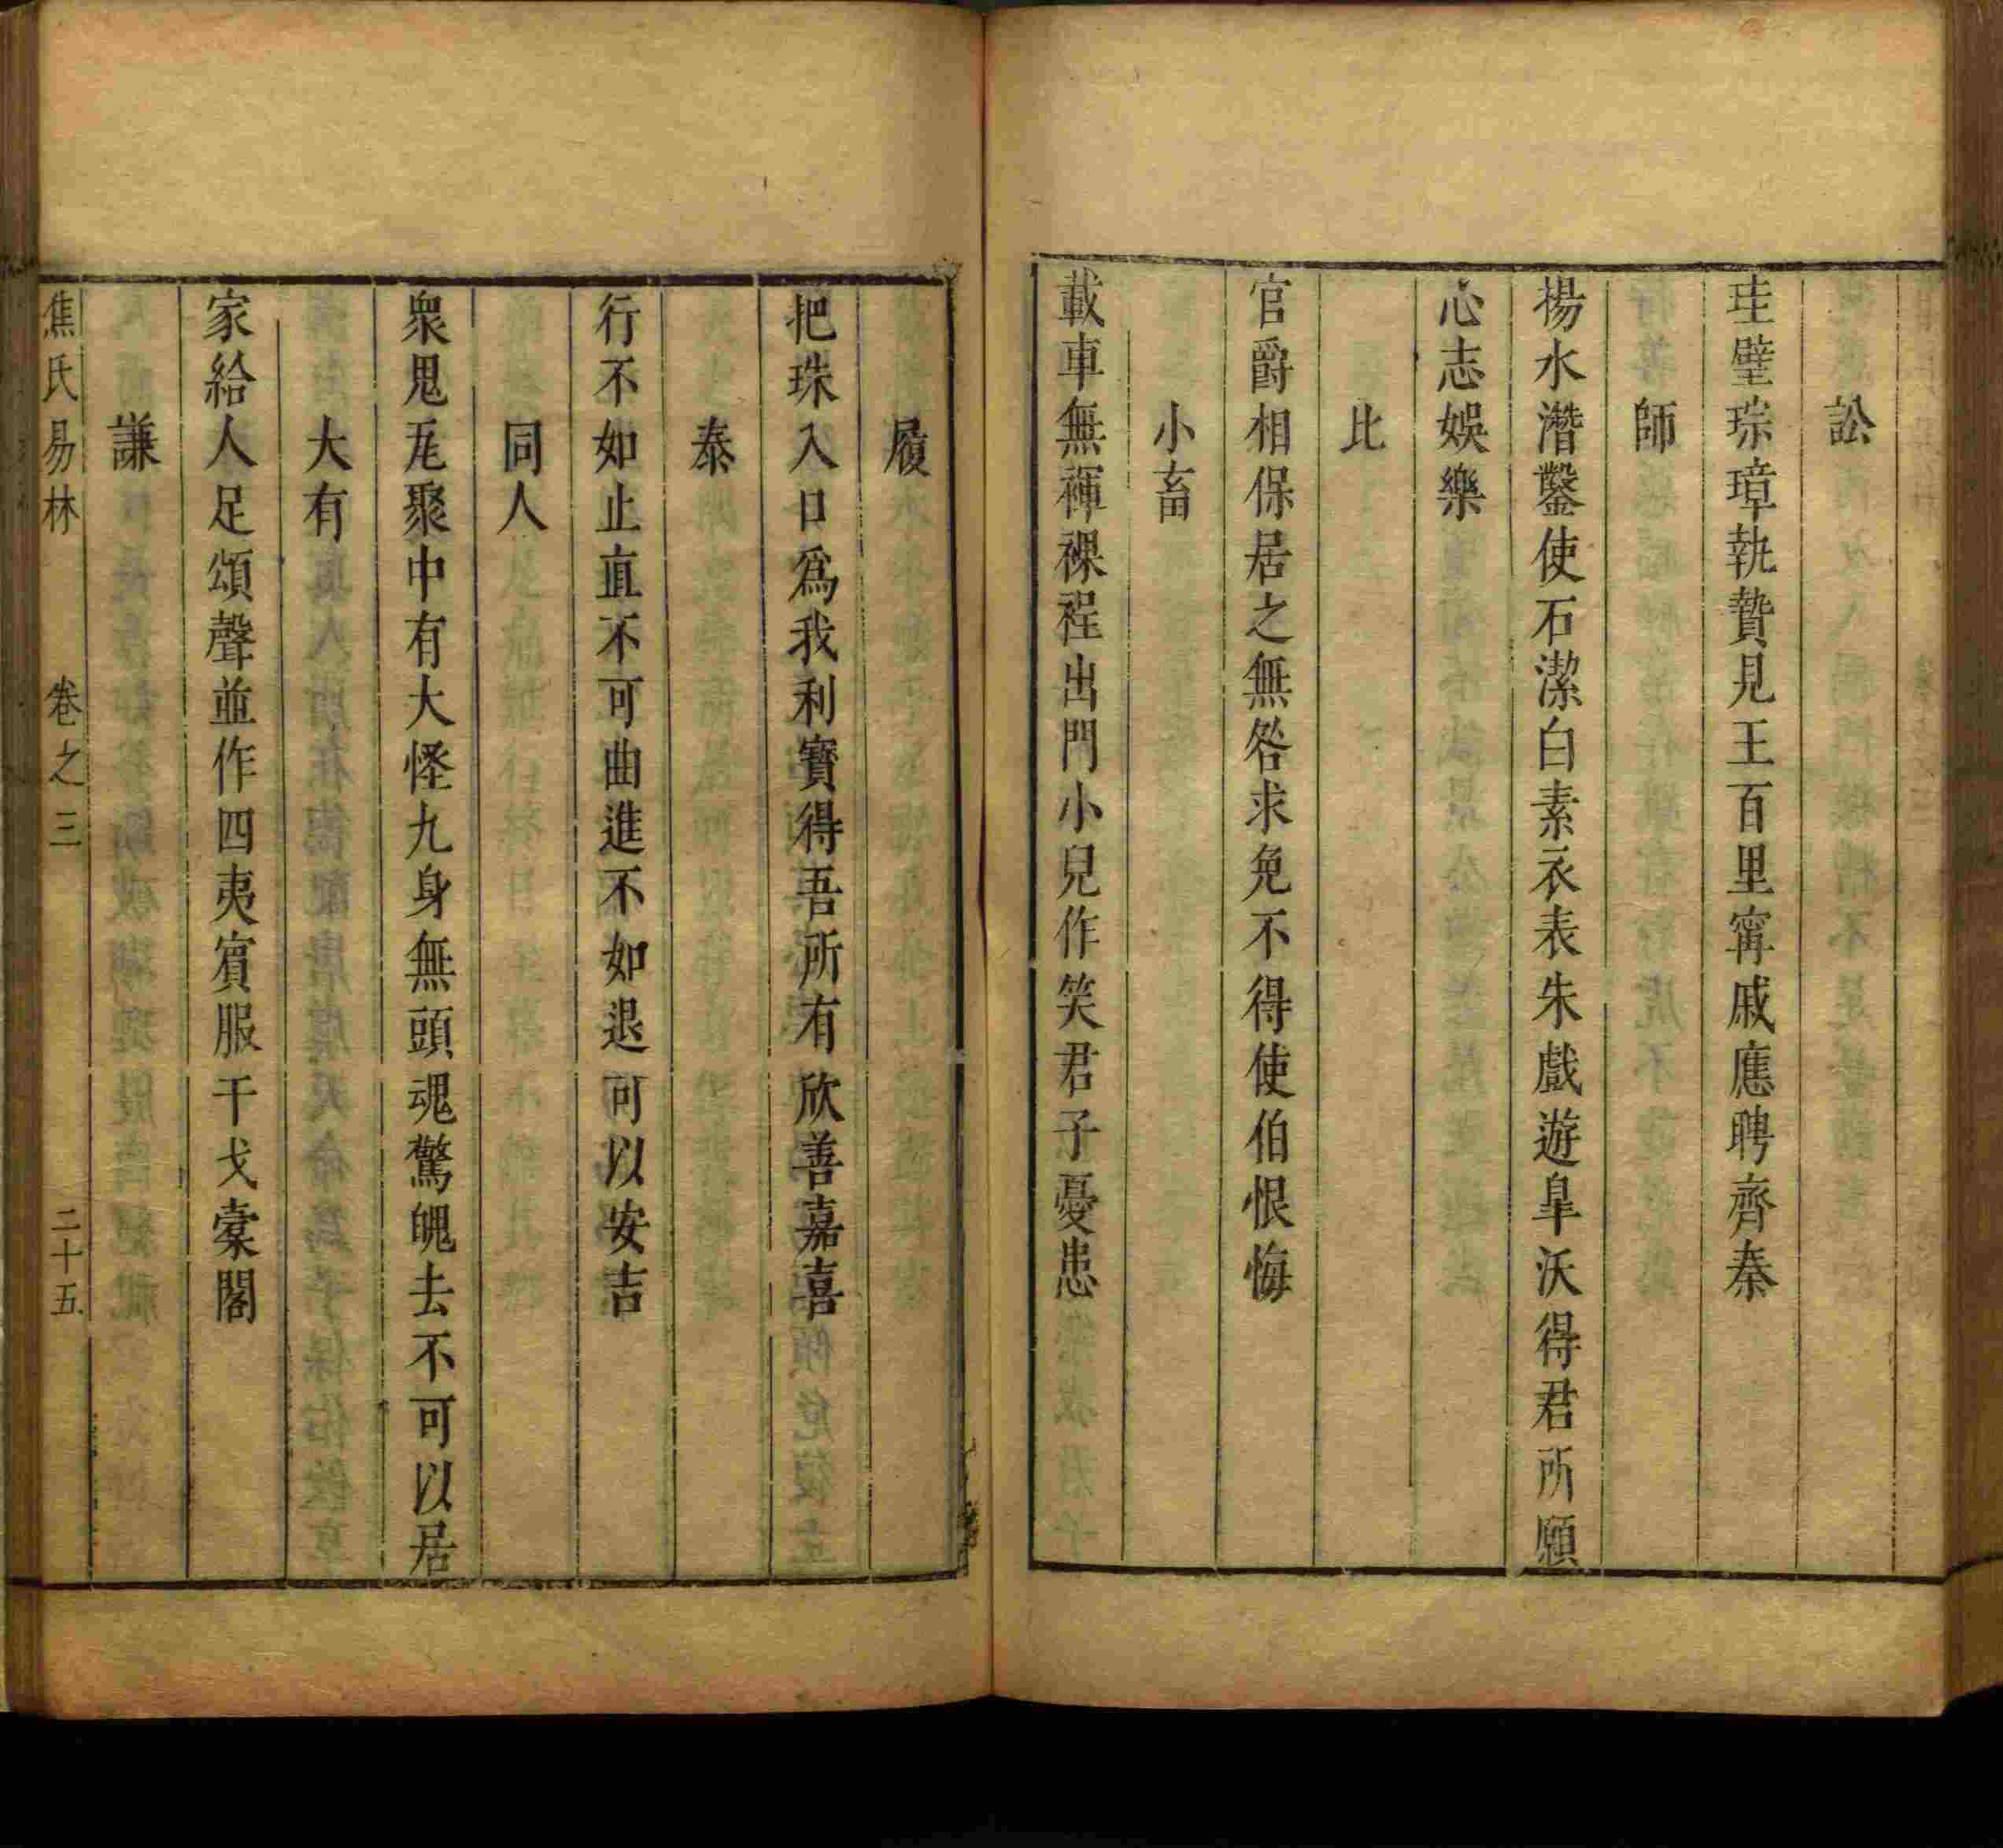 訟
珪璧琮璋執贄見王百里甯戚應聘齊秦
師
揚水潛鑿使石潔白素衣表朱戲遊皐沃得君所願
心志娛樂
比
官爵相保居之無咎求免不得使伯恨悔
小畜
載車無褌裸裎出門小兒作笑君子憂患
履
把珠入口爲我利寶得吾所有欣善嘉喜
泰
行不如止直不可曲進不如退可以安吉
同人
衆鬼尨聚中有大怪九身無頭魂驚魄去不可以居
大有
家給人足頌聲並作四夷賓服干戈櫜閣
謙
焦氏易林 卷之三 二十五